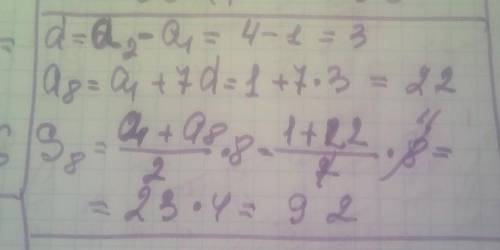 d = a₂ - a₁ = 4 - 1 = 3
a₈ = a₁ + 7d = 1 + 7·3 = 22
S₈ = (a₁ + a₈)/2 · 8 = (1 + 22)/2 · 8 =
= 23·4 = 92